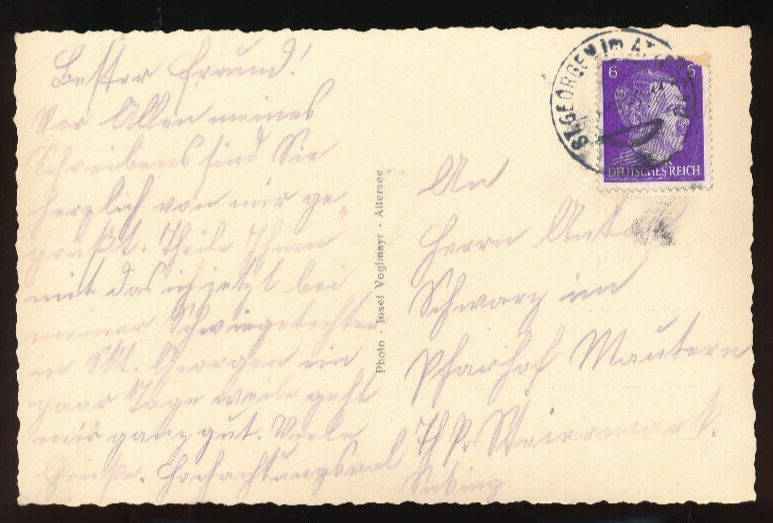 Bester Freund!
Vor Allen meines
Schreibens sind Sie
herzlich von mir ge-
grüßt. Theile Ihnen
mit das ich jetzt bei
meiner Schwiegertochter
in Skt. Georgen ein
paar Tage weile geht
mir ganz gut. Viele
Grüße. Hochachtungsvol
Photo · Josef Voglmayr · Attersee
ST. GEORGEN IM ATT
6 6
DEUTSCHES REICH
An
Herrn Anton
Schwarz im
Pfarhof Mautern
Steiermark.